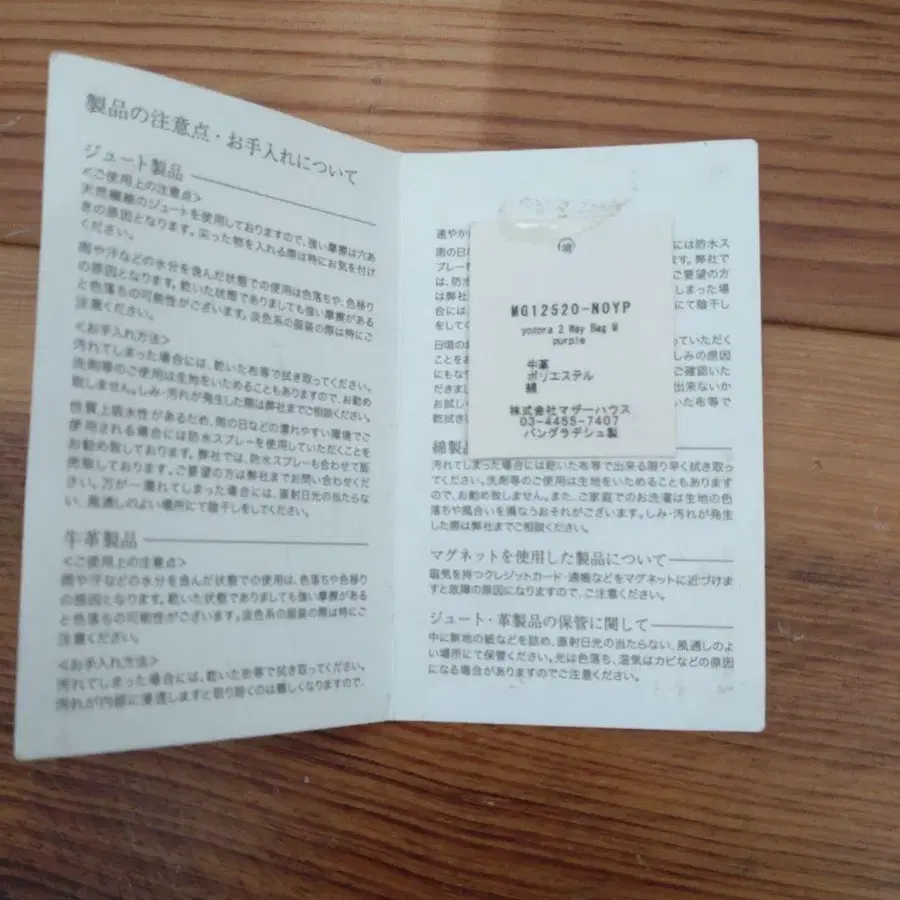 製品の注意点・お手入れについて
ジュート製品
<ご使用上の注意点>
天然繊維のジュートを使用しておりますので、強い摩擦は穴あ
きの原因となります。尖った物を入れる際は特にお気を付け
ください。
雨や汗などの水分を含んだ状態での使用は色落ちや、色移り
の原因となります。乾いた状態でありましても強い摩擦がある
と色落ちの可能性がございます。淡色系の服装の際は特にご
注意ください。
<お手入れ方法>
汚れてしまった場合には、乾いた布等で拭き取ってください。
洗剤等のご使用は生地をいためることもありますので、お勧め
致しません。しみ・汚れが発生した際は弊社までご相談ください。
性質上吸水性があるため、雨の日などの濡れやすい環境でご
使用される場合には防水スプレーを使用していただくことを
お勧め致しております。弊社では、防水スプレーも合わせて販
売致しております。ご要望の方は弊社までお問い合わせくだ
さい。万が一濡れてしまった場合には、直射日光の当たらな
い、風通しのよい場所にて陰干しをしてください。
牛革製品
<ご使用上の注意点>
雨や汗などの水分を含んだ状態での使用は、色落ちや色移り
の原因となります。乾いた状態でありましても強い摩擦がある
と色落ちの可能性がございます。淡色系の服装の際は特にご
注意ください。
<お手入れ方法>
汚れてしまった場合には、乾いた布等で拭き取ってください。
汚れが内部に浸透しますと取り除くのは難しくなりますので、
速やか
雨の日な
には防水ス
プレーを
ます。弊社で
は、防水
ご要望の方
は弊社
しまった場
合には
にて陰干し
をしてく
日頃のお
っていただく
ことをお
しみの原因
にもな
ご確認いた
だきま
出来ないか
お試し
た布等で
乾拭き
MG12520-NOYP
yozora 2 Way Bag M
purple
牛革
ポリエステル
綿
株式会社マザーハウス
03-4455-7407
バングラデシュ製
綿製品
汚れてしまった場合には乾いた布等で出来る限り早く拭き取っ
てください。洗剤等のご使用は生地をいためることもあります
ので、お勧め致しません。また、ご家庭でのお洗濯は生地の色
落ちや風合いを損なうおそれがございます。しみ・汚れが発生
した際は弊社までご相談ください。
マグネットを使用した製品について
磁気を持つクレジットカード・通帳などをマグネットに近づけま
すと故障の原因になりますので、ご注意ください。
ジュート・革製品の保管に関して
中に無地の紙などを詰め、直射日光の当たらない、風通しのよ
い場所にて保管ください。光は色落ち、湿気はカビなどの原因
になる場合がありますのでご注意ください。